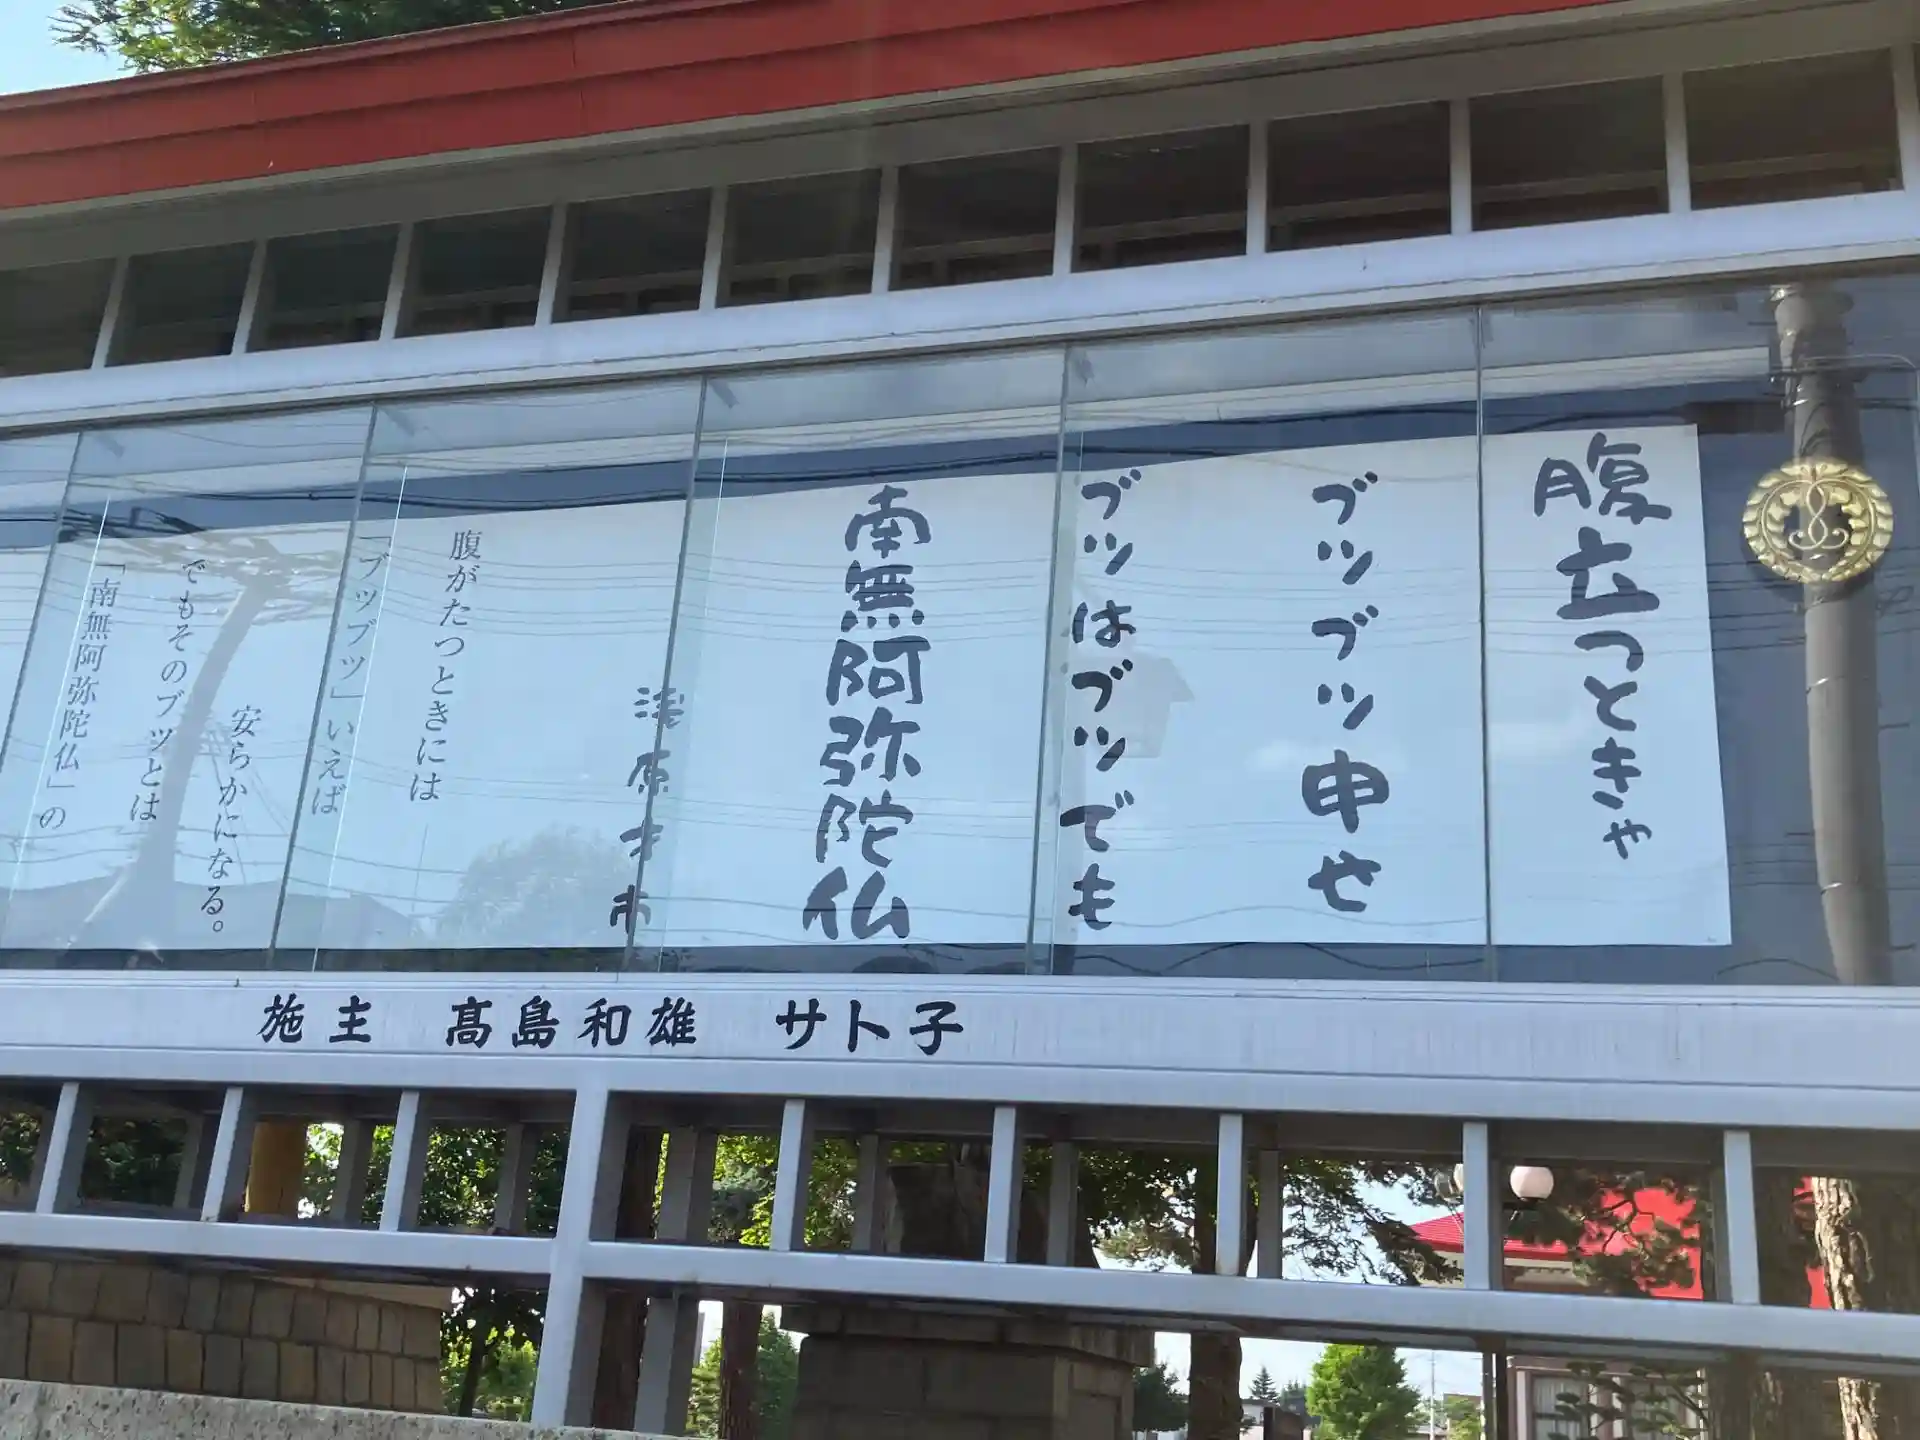 腹立つときゃ
ブツブツ申せ
ブツはブツでも
南無阿弥陀仏
浅原才市
腹がたつときには
「ブツブツ」いえば
安らかになる。
でもそのブツとは
「南無阿弥陀仏」の
施主 髙島和雄 サト子